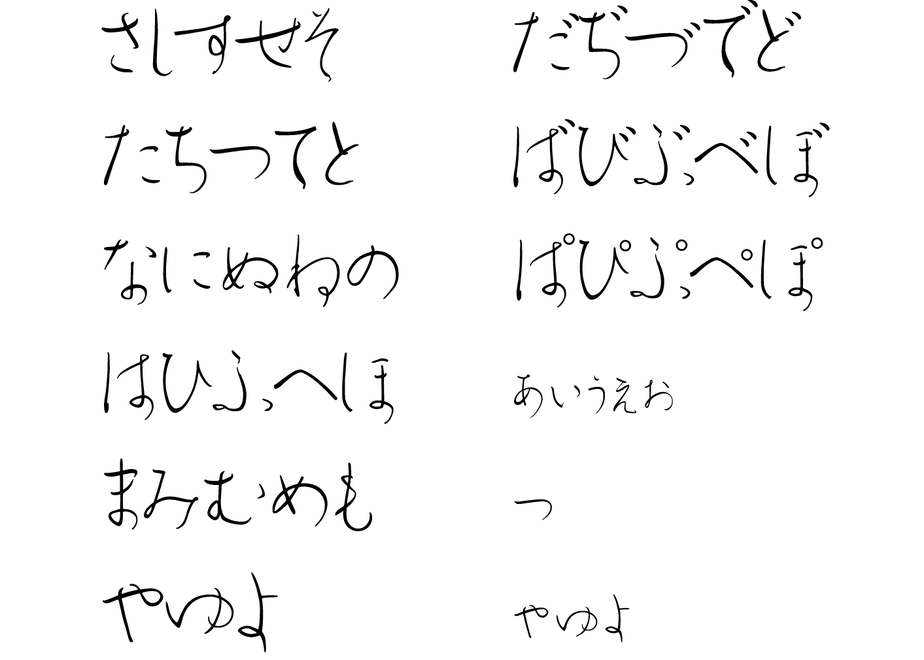 さしすせそ
たちつてと
なにぬねの
はひふへほ
まみむめも
やゆよ
だぢづでど
ばびぶべぼ
ぱぴぷぺぽ
ぁぃぅぇぉ
っ
ゃゅょ